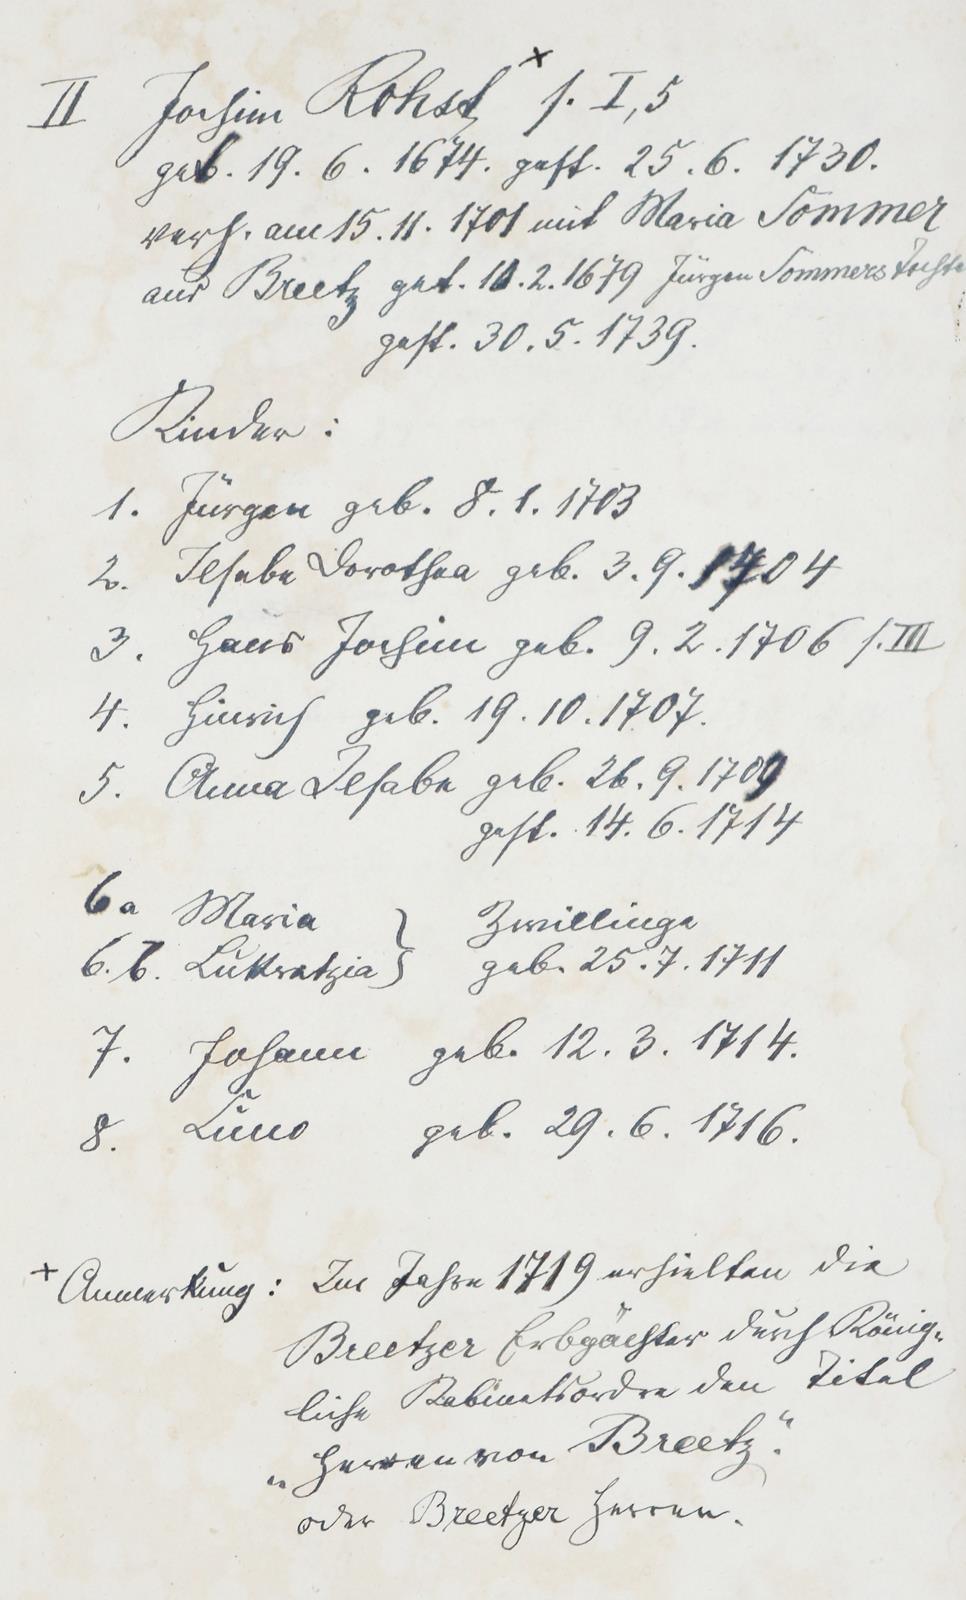 II Jochim Rohst × s. I,5
geb. 19. 6. 1674. gest. 25. 6. 1730.
verh. am 15. 11. 1701 mit Maria Sommer
aus Breetz get. 2. 1679 Jürgen Sommers Tochte
gest. 30. 5. 1739.
Kinder:
1. Jürgen geb. 8. 1. 1703
2. Ilsabe Dorothea geb. 3. 9. 1704
3. Hans Jochim geb. 9. 2. 1706 s. III
4. Hinrich geb. 19. 10. 1707.
5. Anna Ilsabe geb. 26. 9. 1709
gest. 14. 6. 1714
6a Maria } Zwillinge
6.b. Lukretzia } geb. 25. 7. 1711
7. Johann geb. 12. 3. 1714.
8. geb. 29. 6. 1716.
× Anmerkung: Im Jahre 1719 erhielten die
Breetzer Erbpächter durch König-
liche Kabinetsordre den Titel
„Herren von Breetz“.
oder Breetzer Herren.